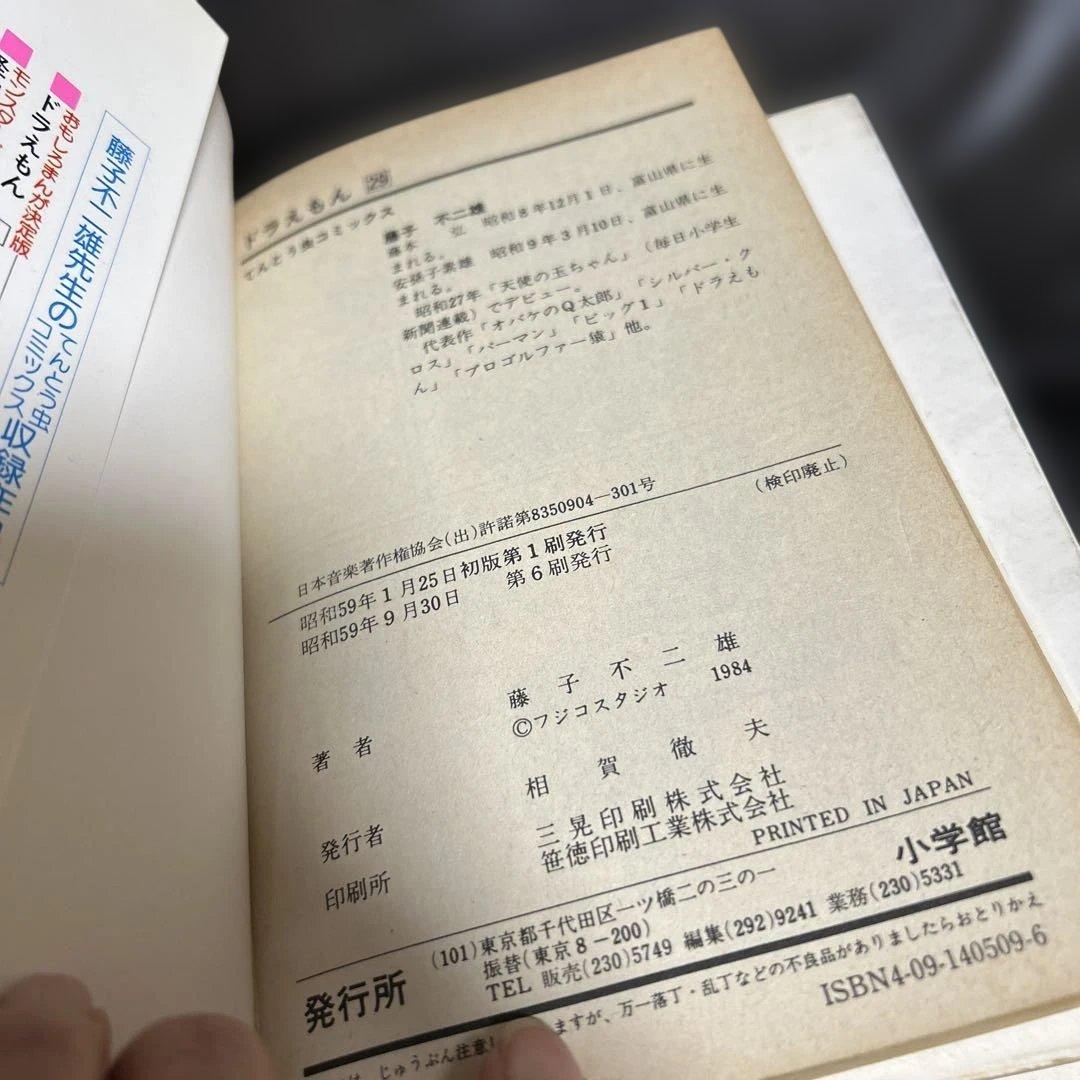 おもしろまんが決定版
ドラえもん
モンス
藤子不二雄先生のてんとう虫コミックス収録作
ドラえもん
てんとう虫コミックス
藤子 不二雄
藤本 弘 昭和8年12月1日、富山県に生
まれる。
安孫子素雄 昭和9年3月10日、富山県に生
まれる。
昭和27年「天使の玉ちゃん」(毎日小学生
新聞連載)でデビュー。
代表作「オバケのQ太郎」「シルバー・ク
ロス」「パーマン」「ビッグ1」「ドラえも
ん」「プロゴルファー猿」他。
日本音楽著作権協会(出)許諾第8350904―301号
(検印廃止)
昭和59年1月25日初版第1刷発行
昭和59年9月30日 第6刷発行
著者 藤子不二雄
©フジコスタジオ 1984
発行者 相賀徹夫
印刷所 三晃印刷株式会社
笹徳印刷工業株式会社
PRINTED IN JAPAN
発行所 (101)東京都千代田区一ツ橋二の三の一 小学館
振替(東京8-200)
TEL 販売(230)5749 編集(292)9241 業務(230)5331
じゅうぶん注意 ますが、万一落丁・乱丁などの不良品がありましたらおとりかえ
ISBN4-09-140509-6